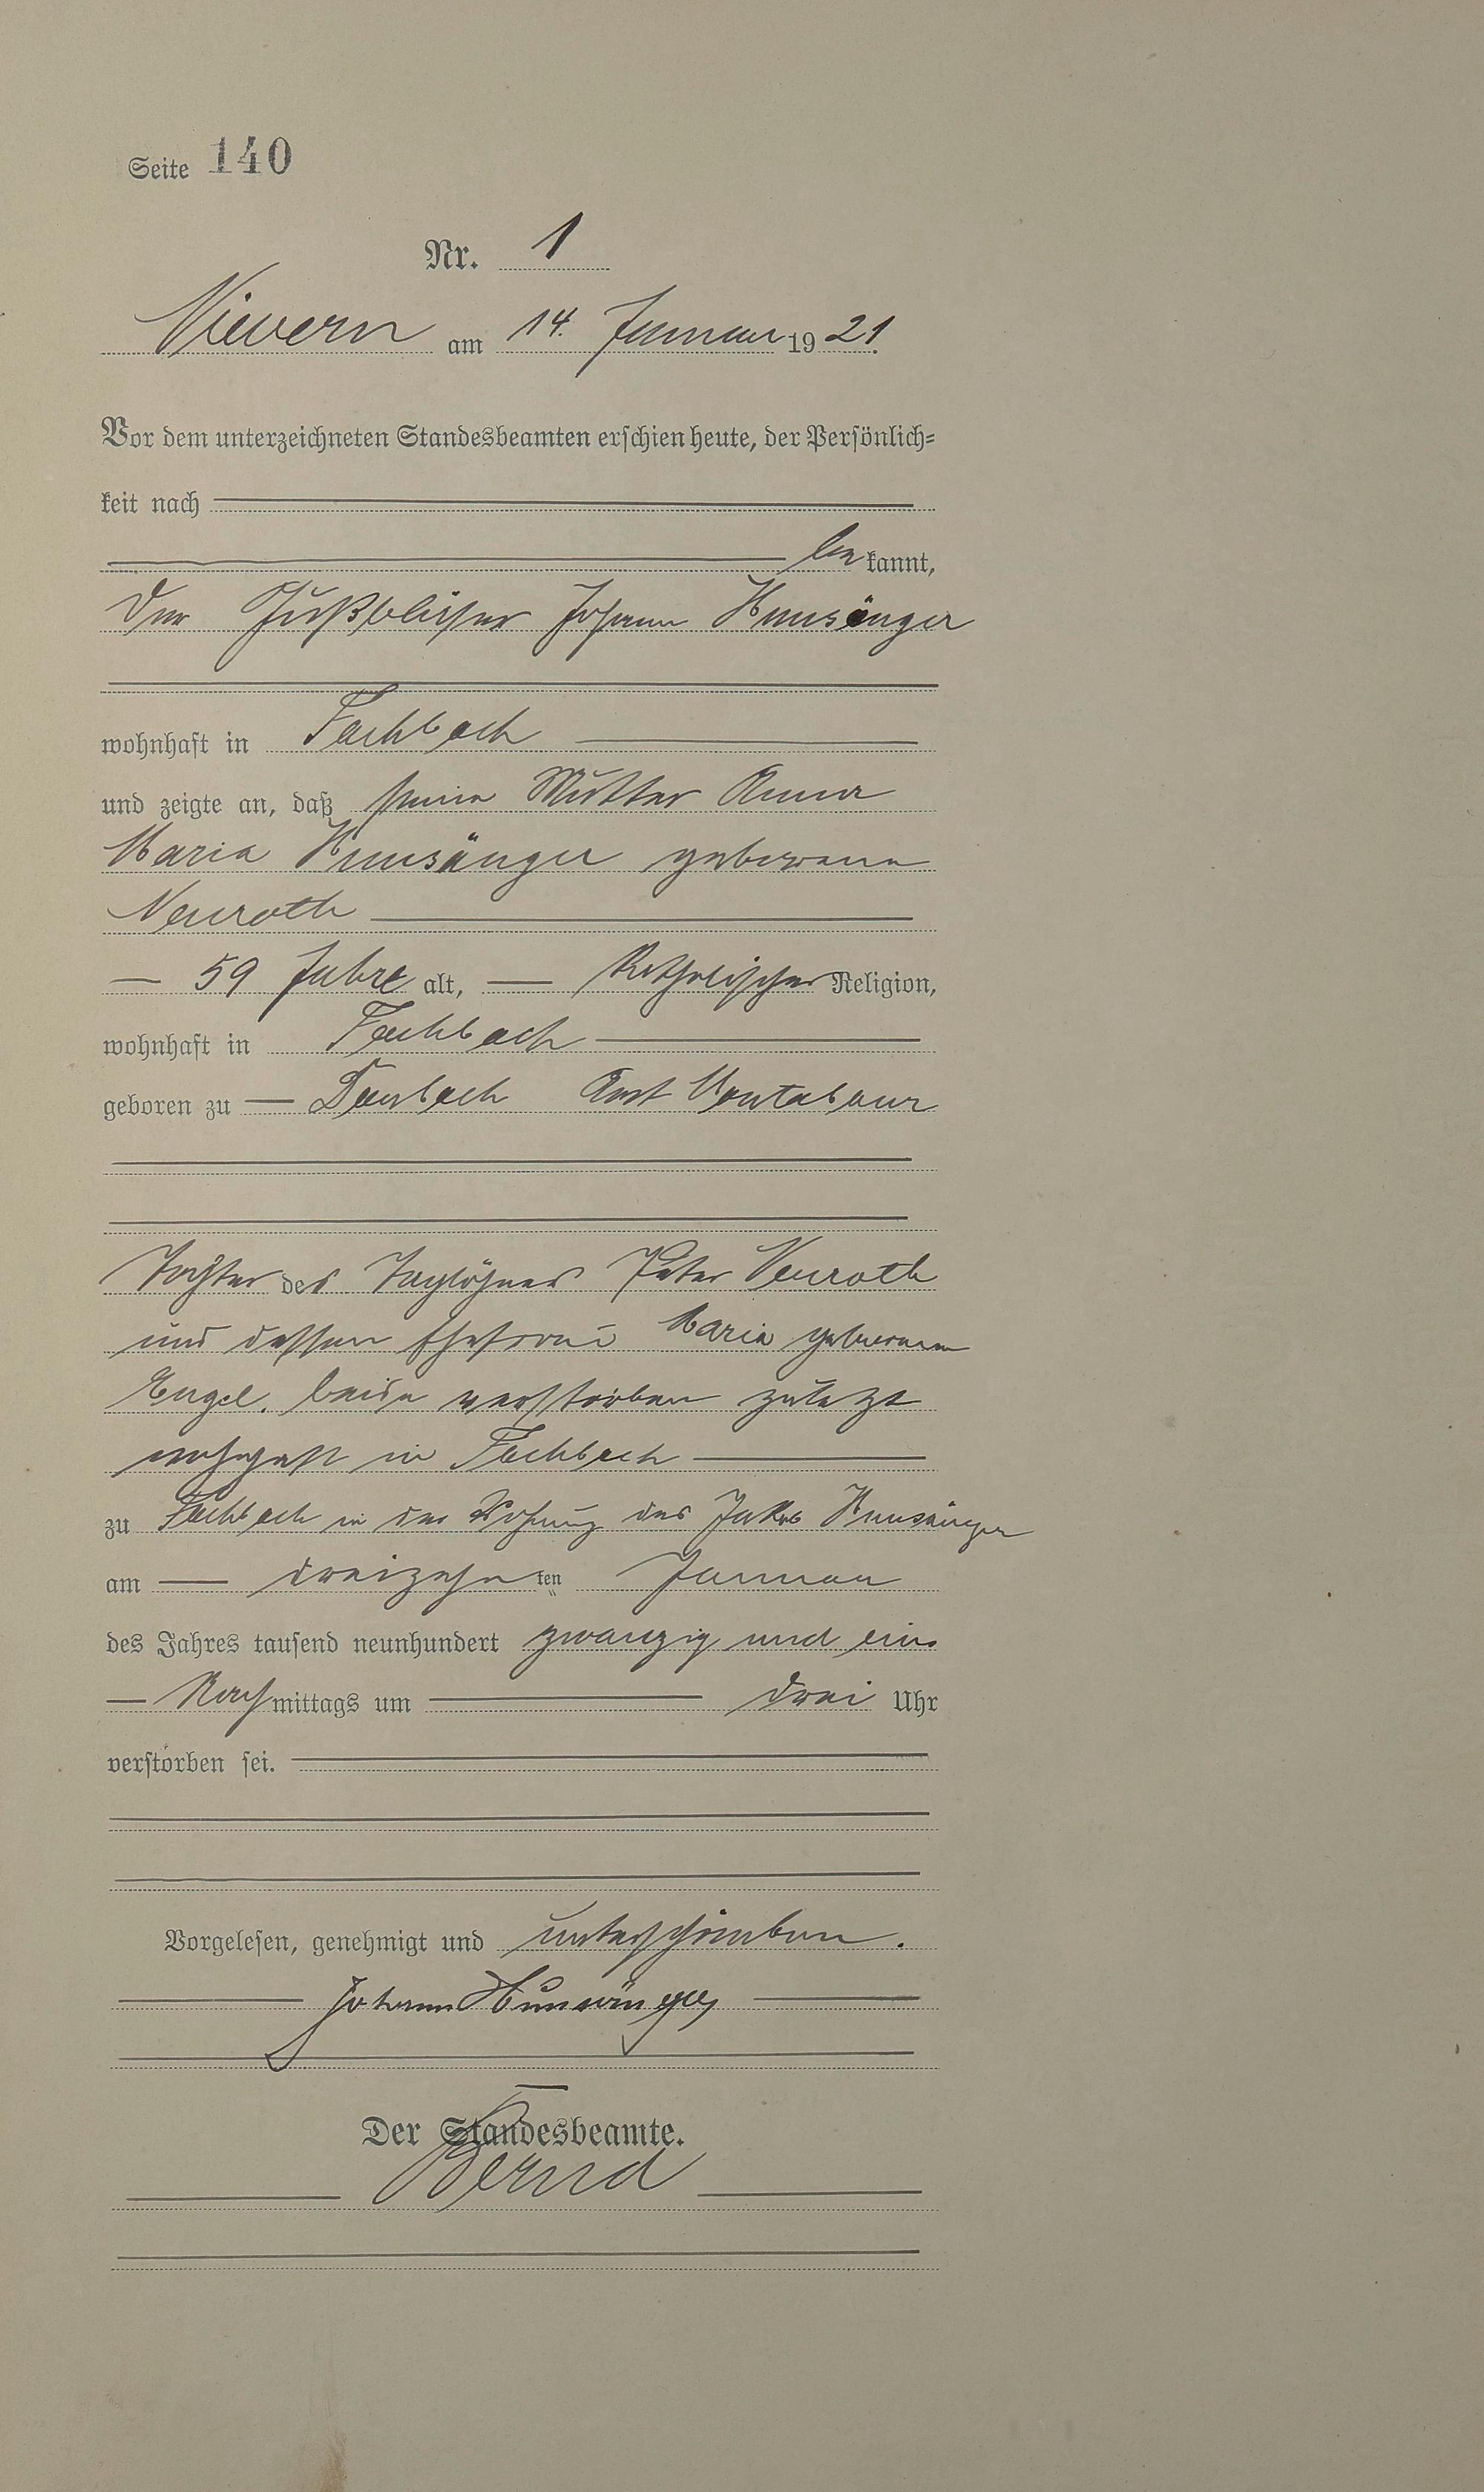 Seite 140
Nr. 1
Nievern am 14. Januar 1921.
Vor dem unterzeichneten Standesbeamten erschien heute, der Persönlich=
keit nach
be kannt,
der Johann Hunsänger
wohnhaft in Fachbach
und zeigte an, daß seine Mutter Anna
Maria Hunsänger geborene
Neuroth
59 Jahre alt, katholischer Religion,
wohnhaft in Fachbach
geboren zu Daubach Amt Montabaur
Tochter des Taglöhners Peter Neuroth
und dessen Ehefrau Maria geborenen
Engel. beide verstorben zuletzt
wohnhaft in Fachbach
zu Fachbach in der Wohnung des Jakob Hunsänger
am dreizehn ten Januar
des Jahres tausend neunhundert zwanzig und eins
Nachmittags um drei Uhr
verstorben sei.
Vorgelesen, genehmigt und unterschrieben.
Johann Hunsänger
Der Standesbeamte.
Bernd